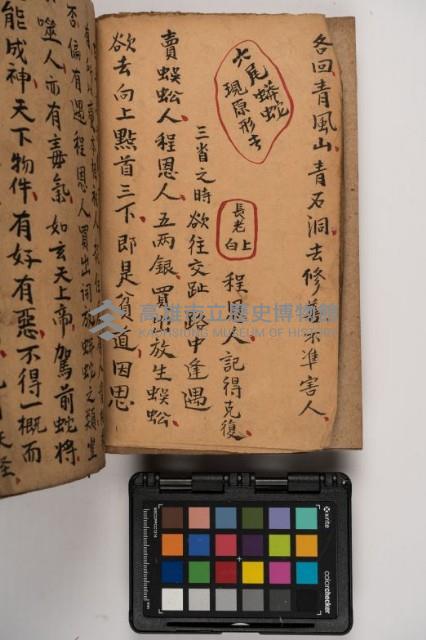 各回青風山青石洞去修養不準害人
六尾蟒蛇
現原形去
長老上
白
程恩人記得克復
三省之時欲往交趾路中逢遇
賣蜈蚣人程恩人五两銀買出放生蜈蚣
欲去向上點首三下即是負道因思
否偏有遇程恩人買出詞放蟒蛇之類豈
噬人亦有毒氣如玄天上帝駕前蛇將
能成神天下物件有好有惡不得一概而
高雄市立歷史博物館
KAOHSIUNG MUSEUM OF HISTORY
x-rite
colorchecker